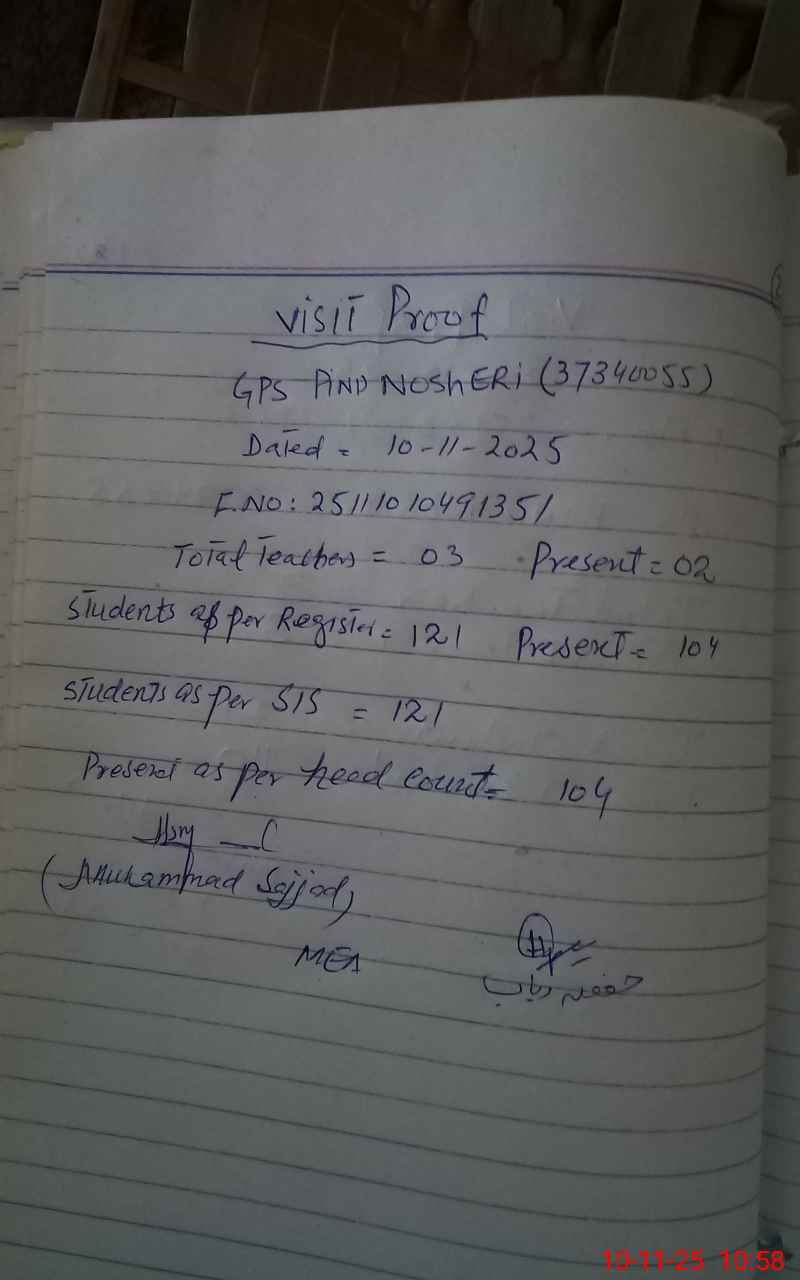 Visit Proof
GPS PIND NOSHERI (37340055)
Dated = 10-11-2025
F.NO: 25111010491351
Total Teachers = 03 Present = 02
Students as per Register = 121 Present = 104
Students as per SIS = 121
Present as per head count = 104
(Muhammad Sajjad)
MEA
10-11-25 10:58